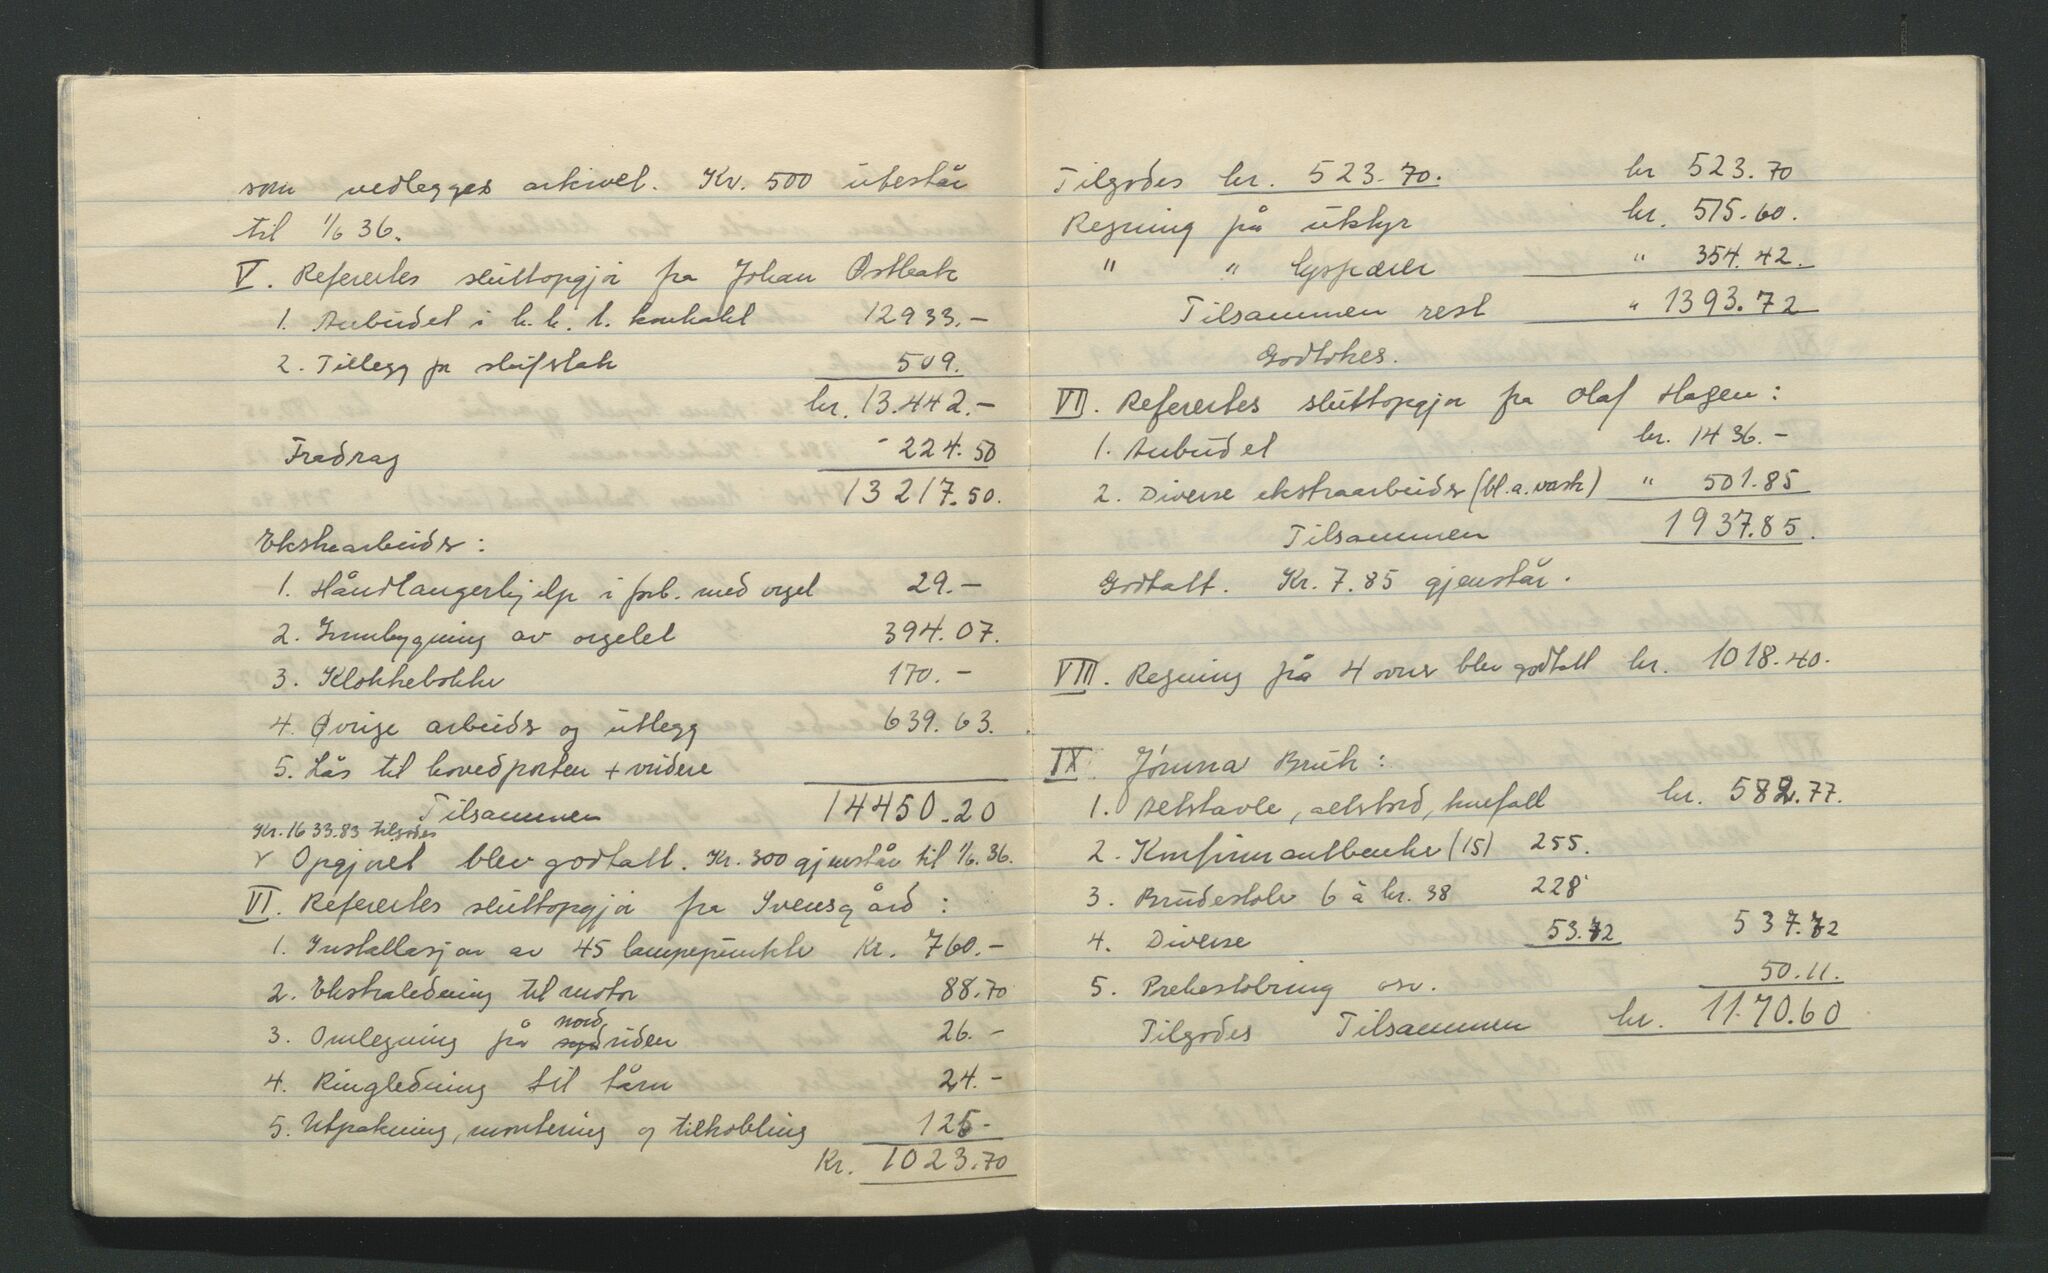 som vedlegges arkivet. Kr. 500 utestår
til 1/6 36.
V. Referertes sluttopgjør fra Johan Østbak
1. Anbudet i h.h.t. kontrakt 12933.-
2. Tillegg for skifertak 509.
kr. 13.442.-
Fradrag - 224.50
13217.50.
Ekstraarbeider:
1. Håndlangerhjelp i forb. med orgel 29.-
2. Innbygning av orgelet 394.07.
3. Klokkebokke 170.-
4. Øvrige arbeider og utlegg 639.63.
5. Lås til hovedporten + vridere
Tilsammen 14450.20
Kr. 1633.83 tilgodes
Opgjøret blev godtatt. Kr. 300 gjenstår til 1/6. 36.
VI. Referertes sluttopgjør fra Svensgård:
1. Installasjon av 45 lampepunkter Kr. 760.-
2. Ekstraledning til motor 88.70
nord
3. Omlegning på sydsiden 26.-
4. Ringledning til tårn 24.-
5. Utpakning, montering og tilkobling 125-
Kr. 1023.70
Tilgodes kr. 523.70. kr 523.70
Regning på utstyr kr. 515.60.
" " lyspærer " 354.42.
Tilsammen rest " 1393.72
Godtokes.
VII. Referertes sluttopgjør fra Olaf Hagen:
1. Anbudet kr. 1436.-
2. Diverse ekstraarbeider (bl.a. vask) " 501.85
Tilsammen 1937.85.
Godtatt. Kr. 7.85 gjenstår.
VIII. Regning på 4 ovner blev godtatt kr. 1018.40.
IX. Jømna Bruk:
1. Altertavle, alterbord, knefall kr. 582.77.
2. Konfirmantbenker (15) 255.
3. Brudestoler 6 à kr. 38 228
4. Diverse 53.72 537.72
5. Prekestolring osv. 50.11.
Tilgodes Tilsammen kr. 1170.60